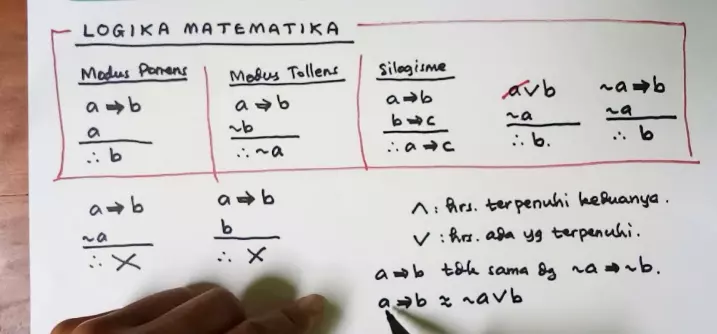 LOGIKA MATEMATIKA
Modus Ponens
a ⇒ b
a
∴ b
Modus Tollens
a ⇒ b
~b
∴ ~a
Silogisme
a ⇒ b
b ⇒ c
∴ a ⇒ c
a ∨ b
~a
∴ b.
~a ⇒ b
~a
∴ b
a ⇒ b
~a
∴ X
a ⇒ b
b
∴ X
∧ : hrs. terpenuhi keduanya.
∨ : hrs. ada yg terpenuhi.
a ⇒ b tdk sama dg ~a ⇒ ~b.
a ⇒ b ≈ ~a ∨ b